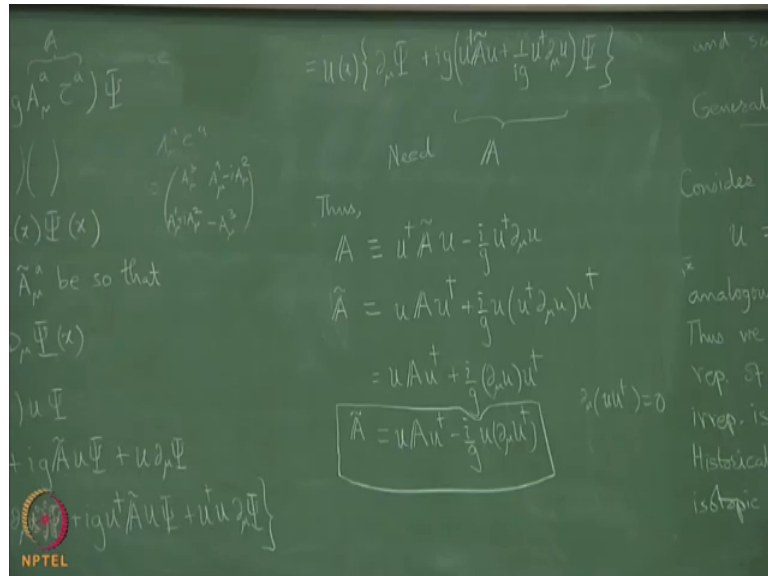 A
g A_μ^a τ^a ) Ψ
)( )
(x) Ψ(x)
Ã_μ^a be so that
∂_μ Ψ(x)
) u Ψ
+ ig Ã u Ψ + u ∂_μ Ψ
+ ig u† Ã u Ψ + u† u ∂_μ Ψ }
= ( A_μ^3 A_μ^1 - iA_μ^2
A_μ^1 + iA_μ^2 - A_μ^3 )
= u(x) { ∂_μ Ψ + ig ( u† Ã u + 1/ig u† ∂_μ u ) Ψ }
Need A
Thus,
A ≡ u† Ã u - i/g u† ∂_μ u
Ã = u A u† + i/g u (u† ∂_μ u) u†
= u A u† + i/g (∂_μ u) u†
Ã = u A u† - i/g u (∂_μ u†)
∂_μ (u u†) = 0
and
General
Consider
u =
analogou
Thus we
rep. of
irrep. is
Historical
isotopic
NPTEL